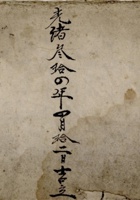 光绪叁拾四年四月拾二日吉立